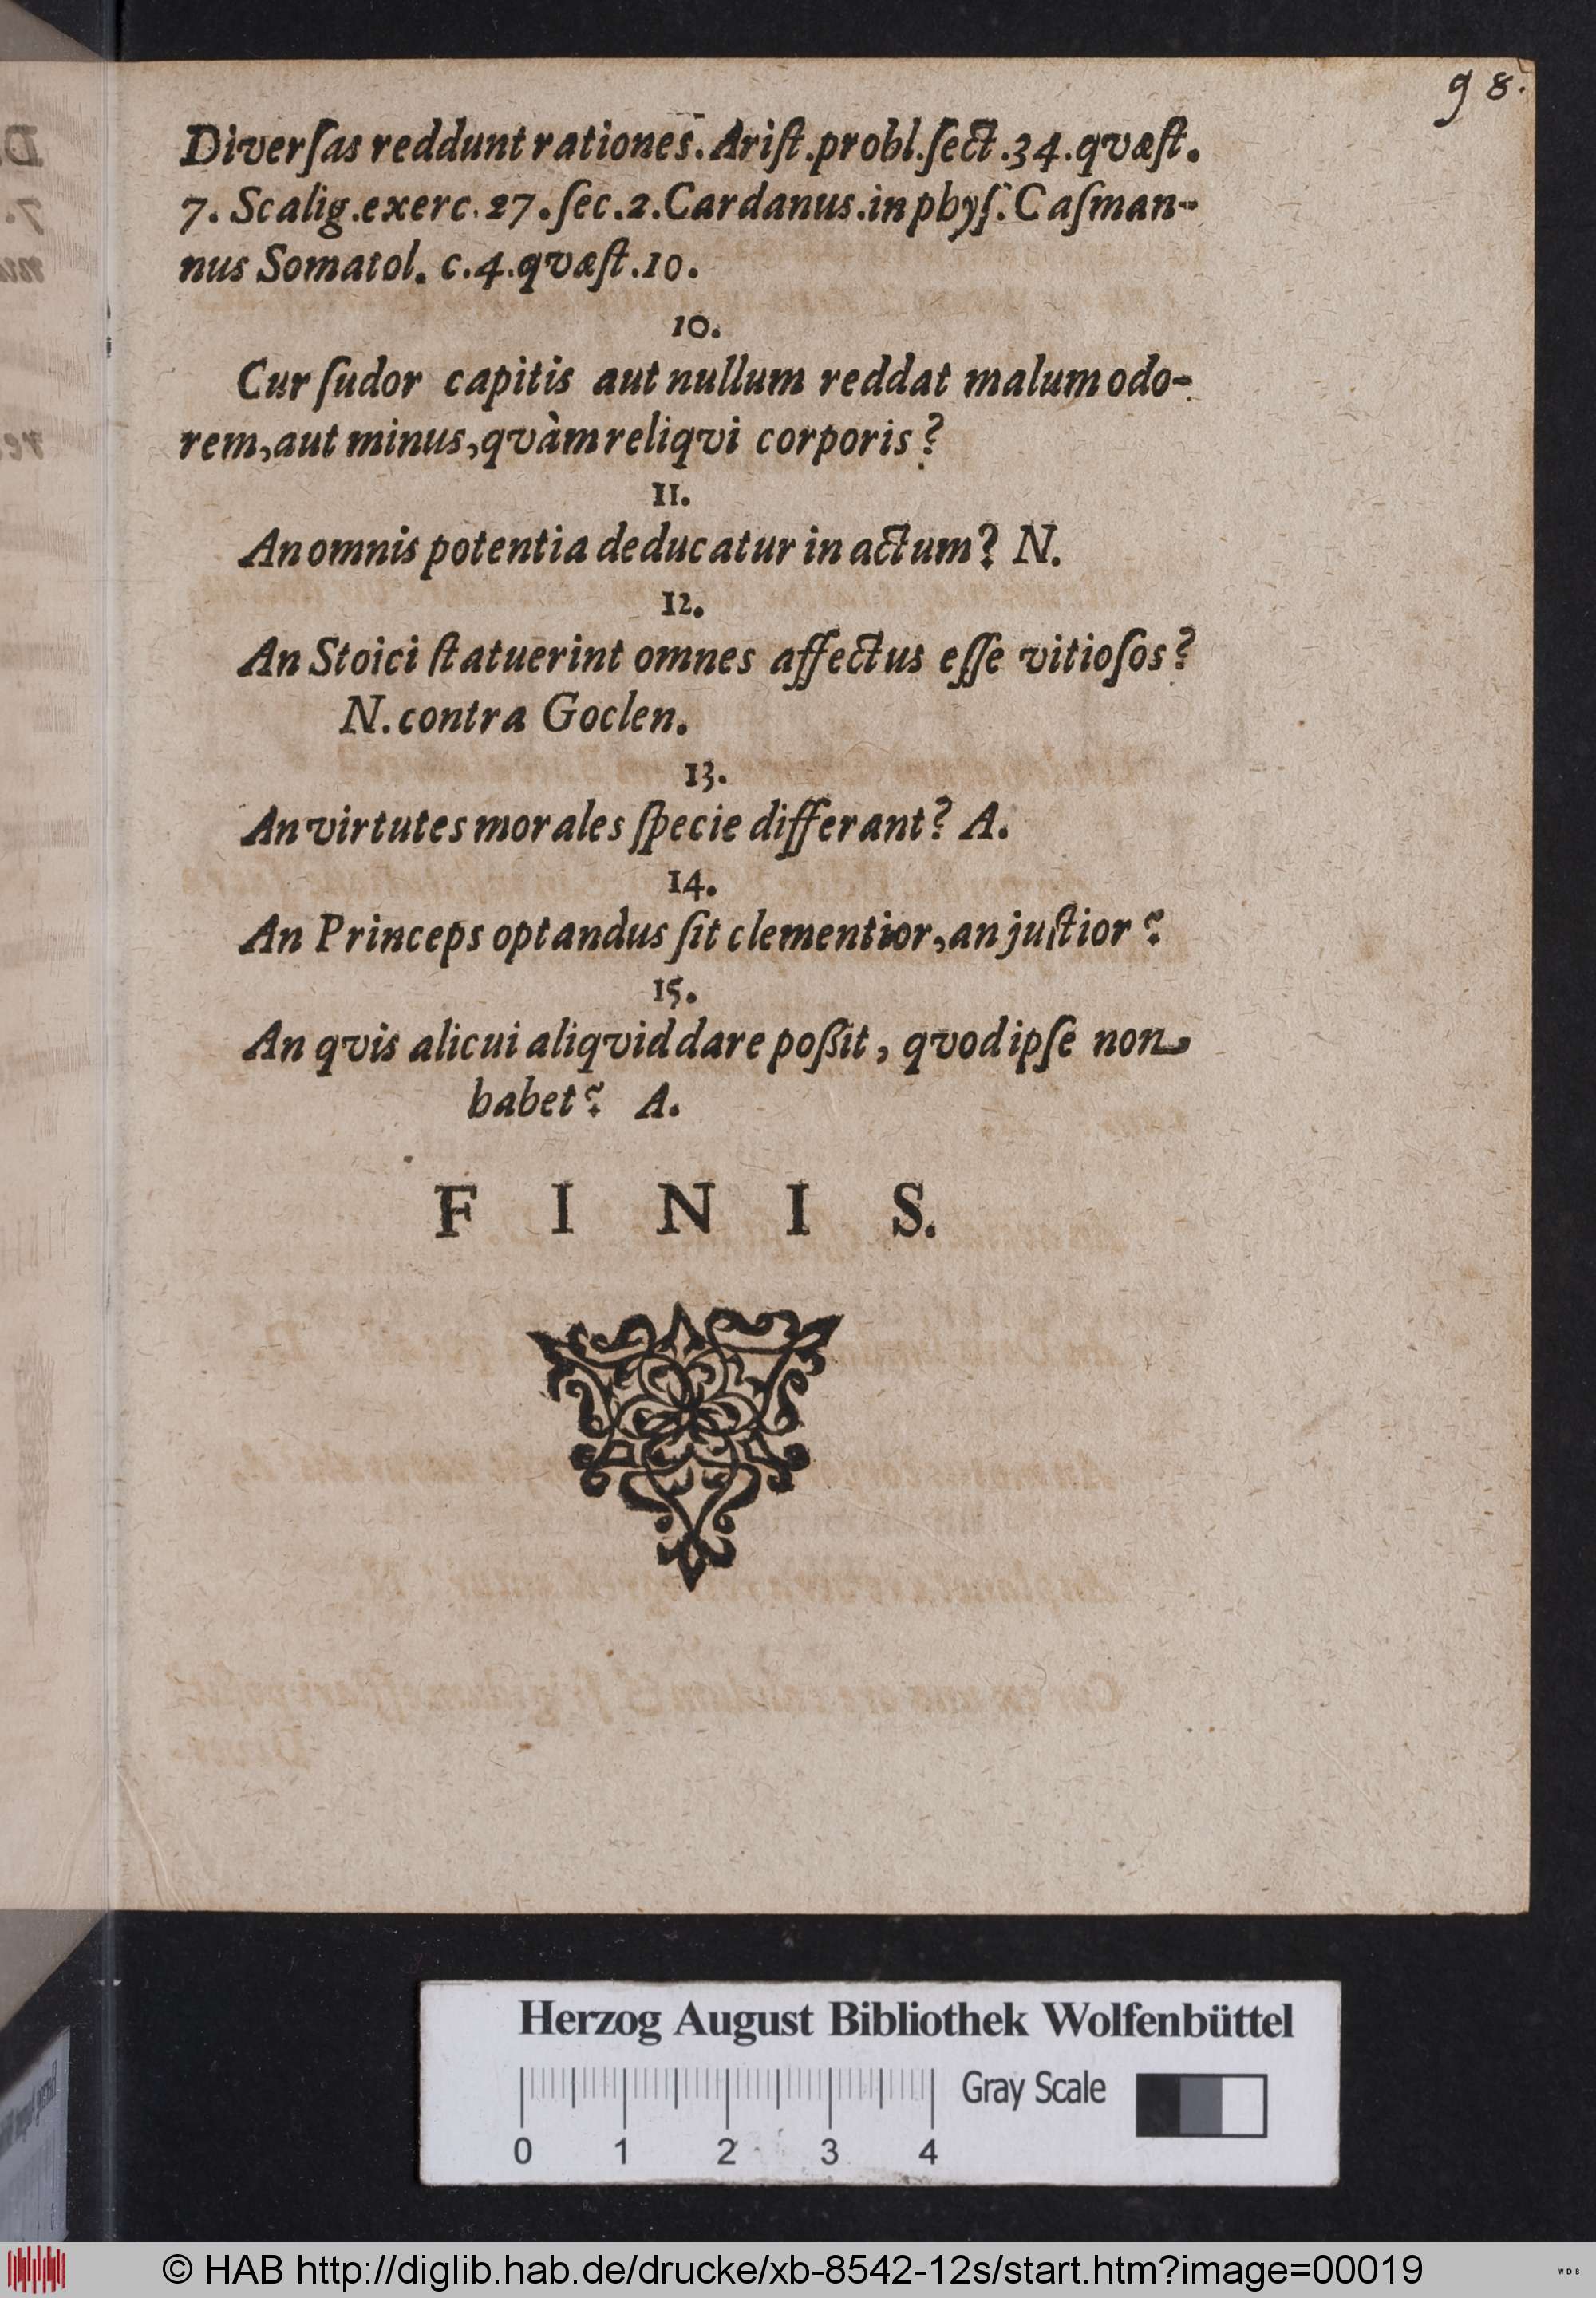 98.
Diverſas reddunt rationes. Ariſt.probl.ſect.34.qvæſt.
7. Scalig.exerc.27.ſec.2.Cardanus.in phyſ.Caſman-
nus Somatol. c.4.qvæſt.10.
10.
Cur ſudor capitis aut nullum reddat malum odo-
rem,aut minus,qvàm reliqvi corporis?
11.
An omnis potentia deducatur in actum? N.
12.
An Stoici ſtatuerint omnes affectus eſſe vitioſos?
N.contra Goclen.
13.
An virtutes morales ſpecie differant? A.
14.
An Princeps optandus ſit clementior,an juſtior?
15.
An qvis alicui aliqvid dare poßit, qvod ipſe non
habet? A.
F I N I S.
Herzog August Bibliothek Wolfenbüttel
Gray Scale
0 1 2 3 4
© HAB http://diglib.hab.de/drucke/xb-8542-12s/start.htm?image=00019
WDB